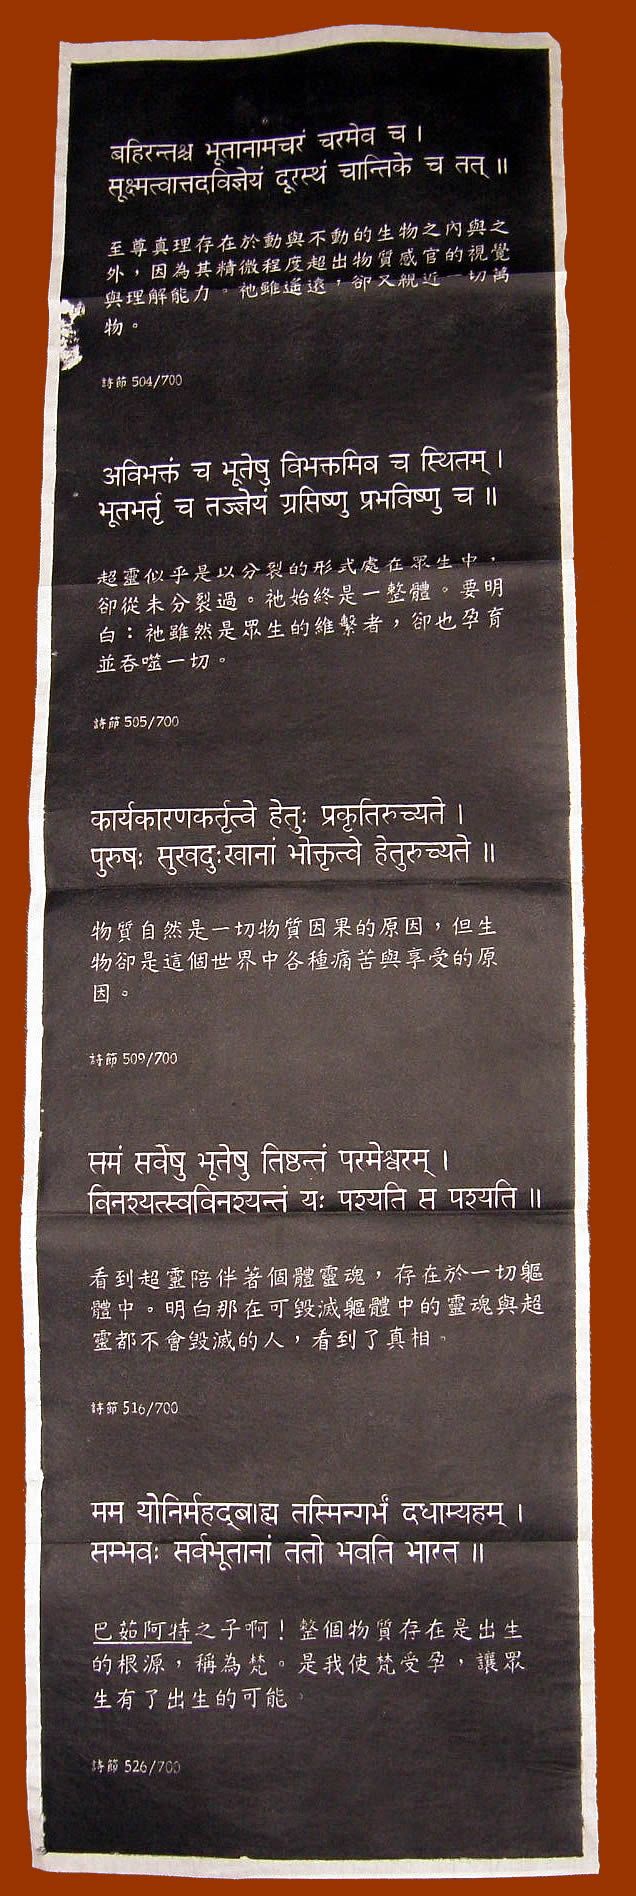 बहिरन्तश्च भूतानामचरं चरमेव च ।
सूक्ष्मत्वात्तदविज्ञेयं दूरस्थं चान्तिके च तत् ॥
至尊真理存在於動與不動的生物之內與之
外，因為其精微程度超出物質感官的視覺
與理解能力。祂雖遙遠，卻又親近一切萬
物。
詩節 504/700
अविभक्तं च भूतेषु विभक्तमिव च स्थितम् ।
भूतभर्तृ च तज्ज्ञेयं ग्रसिष्णु प्रभविष्णु च ॥
超靈似乎是以分裂的形式處在眾生中，
卻從未分裂過。祂始終是一整體。要明
白：祂雖然是眾生的維繫者，卻也孕育
並吞噬一切。
詩節 505/700
कार्यकारणकर्तृत्वे हेतुः प्रकृतिरुच्यते ।
पुरुषः सुखदुःखानां भोक्तृत्वे हेतुरुच्यते ॥
物質自然是一切物質因果的原因，但生
物卻是這個世界中各種痛苦與享受的原
因。
詩節 509/700
समं सर्वेषु भूतेषु तिष्ठन्तं परमेश्वरम् ।
विनश्यत्स्वविनश्यन्तं यः पश्यति स पश्यति ॥
看到超靈陪伴著個體靈魂，存在於一切軀
體中。明白那在可毀滅軀體中的靈魂與超
靈都不會毀滅的人，看到了真相。
詩節 516/700
मम योनिर्महद्ब्रह्म तस्मिन्गर्भं दधाम्यहम् ।
सम्भवः सर्वभूतानां ततो भवति भारत ॥
巴茹阿特之子啊！整個物質存在是出生
的根源，稱為梵。是我使梵受孕，讓眾
生有了出生的可能。
詩節 526/700